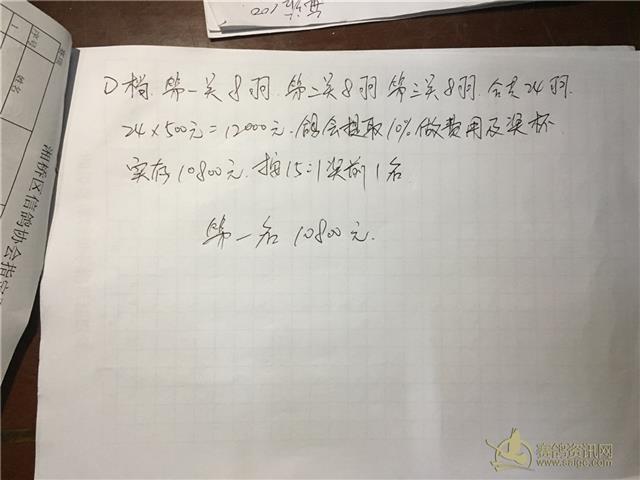 D档 第一关8羽.第二关8羽 第三关8羽.合共24羽.
24×500元=12000元.鸽会提取10%做费用及奖杯.
实存10800元.按15:1奖前1名
第一名 10800元.
湘桥区信鸽协会指定
序号
姓名
1
赛鸽资讯网
www.saige.com